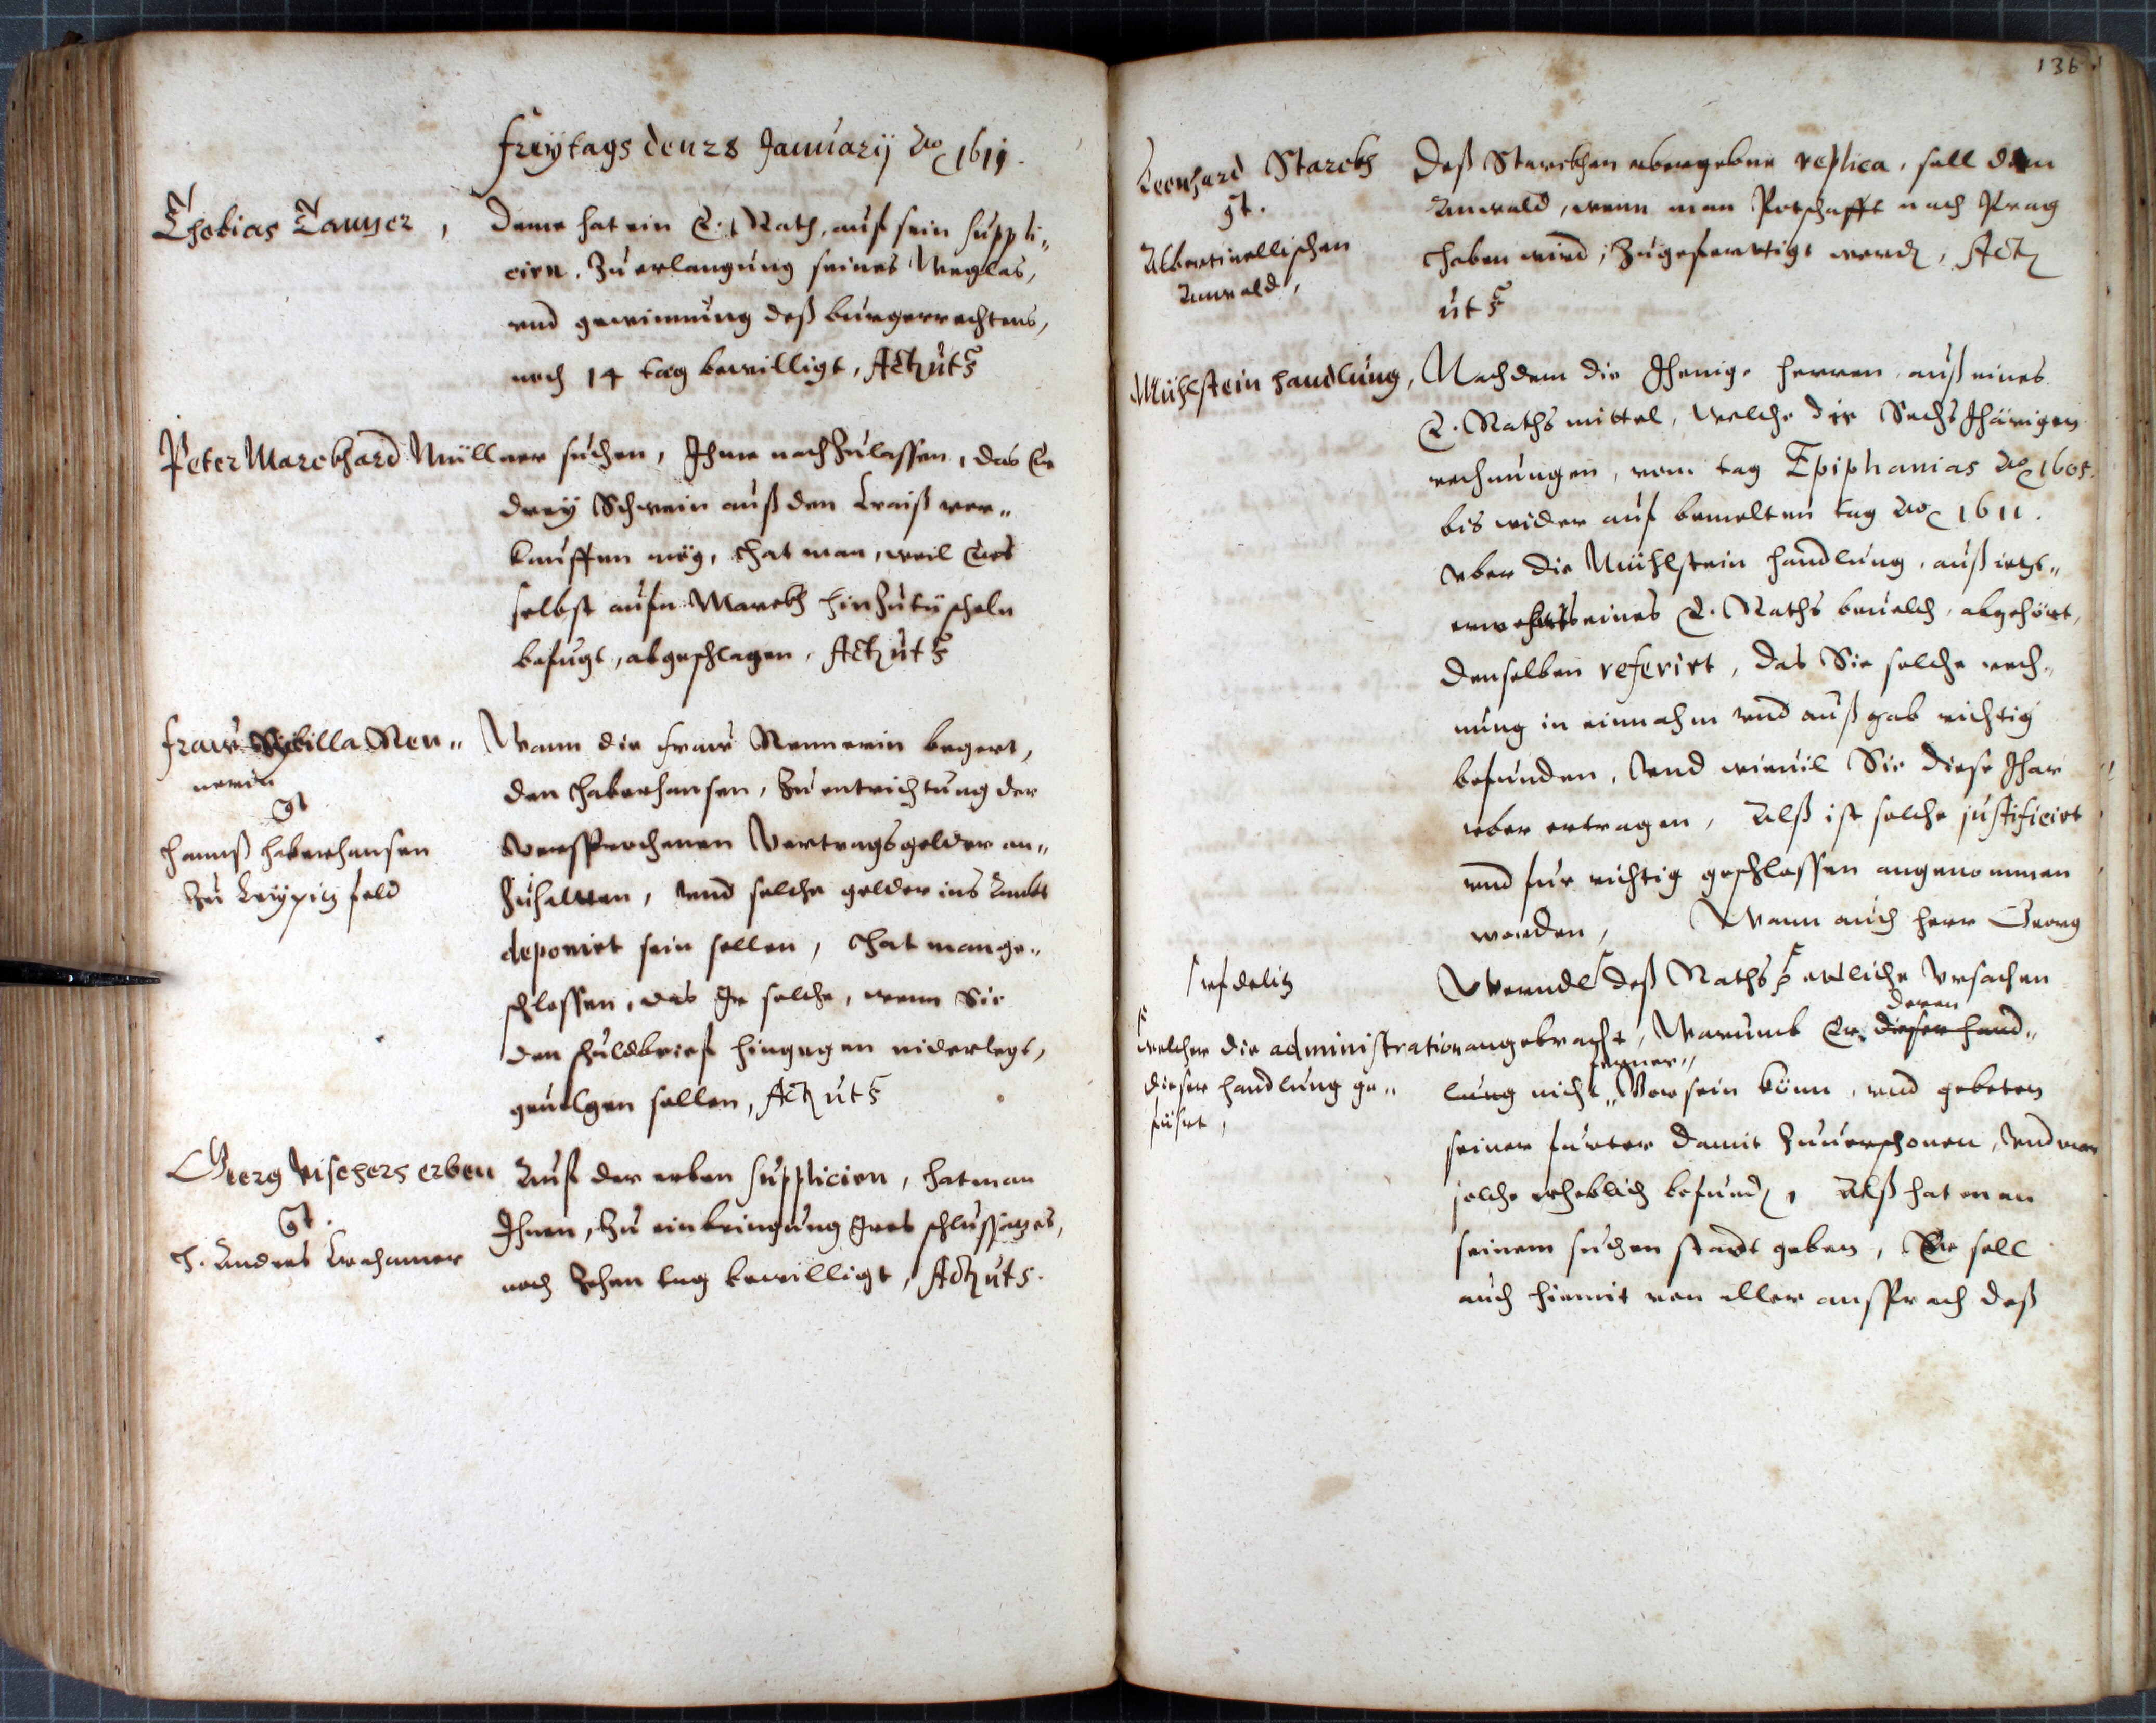 Freÿtags den 28 Januarÿ Ao 1611.
Thobias Tanner,
Deme hat ein E. Rath, auf sein suppli„
cirn, Zu erlangung seines Weglas,
vnd gewinnung deß burgerrechtens,
noch 14 tag bewilligt, Act ut s
Peter Marckhard Müllner suchen, Ihme nach Zulassen, das Er
dreÿ Schwein auß dem Craiß ver„
kauffen mög, hat man, weil Ers
selbst aufn Marckh hin Zu
befugt, abgeschlagen, Act ut s
Fraw Sibilla Ren„
nerin
gt
Hannß Haberhansen
Zu
Wann die Fraw Rennerin begert,
den Haberhansen, Zu entrichtung der
versprochenen Vertragsgelder an„
Zuhaltten, vnd solche gelder ins Ambt
deponirt sein sollen, Hat man ge„
schlossen, das Ir solche, wenn Sie
den schuldbrief hingegen niderlegt,
geuolgen sollen, Act ut s
Georg Vischers erben
gt.
H. Andres Lechamer
Auf der erben supplicirn, hat man
Ihnen, Zu einbringung Ires schlußsazes,
noch Zehen tag bewilligt, Act ut s.
136
Leonhard Starckh
gt.
Albertinellischen
Anwald,
Deß Starckhen vbergebne replica, soll dem
Anwald, wenn man Potschafft nach Prag
haben wird, Zugefertigt werd, Act
ut s
Mühlstein handlung,
Nachdem die Jhenige herren auß eines
E. Raths mittel, welche die Sechs Jhärigen
rechnungen, vom tag Epiphanias Ao 1605.
bis wider auf bemelten tag Ao 1611.
vber die Mühlstein handlung, auß iezt„
eines E. Raths beuelch, abgehört,
denselben referirt, das Sie solche rech„
nung in einnahm vnd außgab richtig
befunden, vnd wieuil Sie diese Jhar
vber ertragen, Alß ist solche justificirt
vnd für richtig geschlossen angenommen
worden, Wann auch herr Georg
Werndl deß Raths etliche Vrsachen
welcher die administration
dieser handlung ge„
führt,
angebracht, Warumb Er deren dieser hand„
lung nicht ferner„ Vor sein könn, vnd gebeten
seiner furter damit Zuuerschonen, vnd man
solche erheblich befund, Alß hat man
seinem suchen statt geben, Er soll
auch hiemit von aller ansprach deß